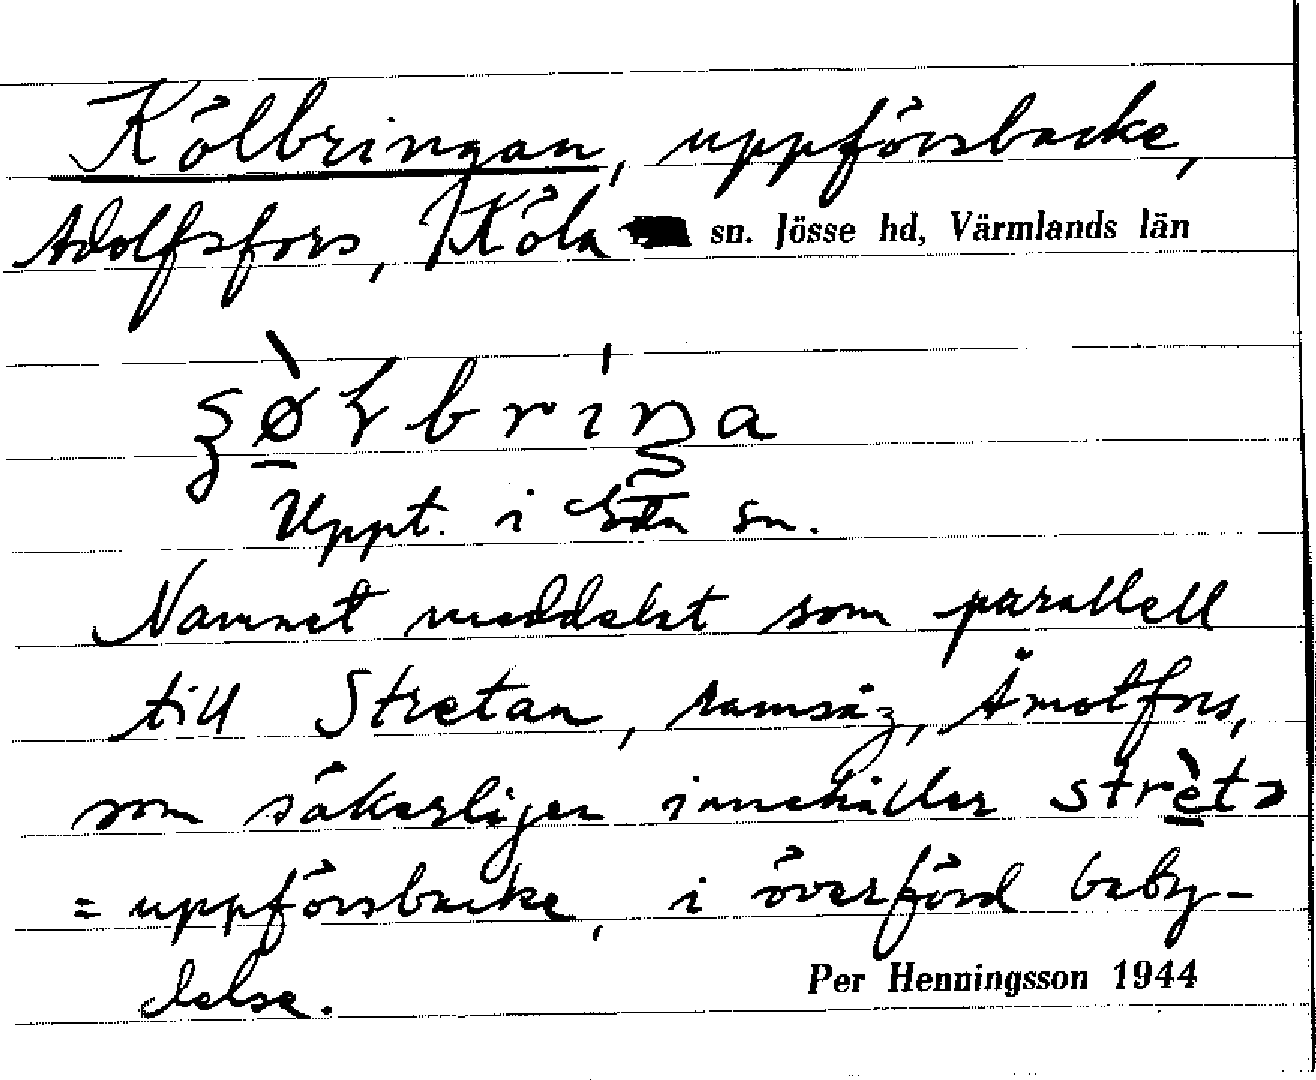 Kölbringan, uppförsbacke,
Adolfsfors, Köla sn. Jösse hd, Värmlands län
Uppt. i sn.
Namnet meddelat som parallell
till Stretan, Åmotfors,
som säkerligen innehåller strètə
= uppförsbacke, i överförd bety-
delse.
Per Henningsson 1944